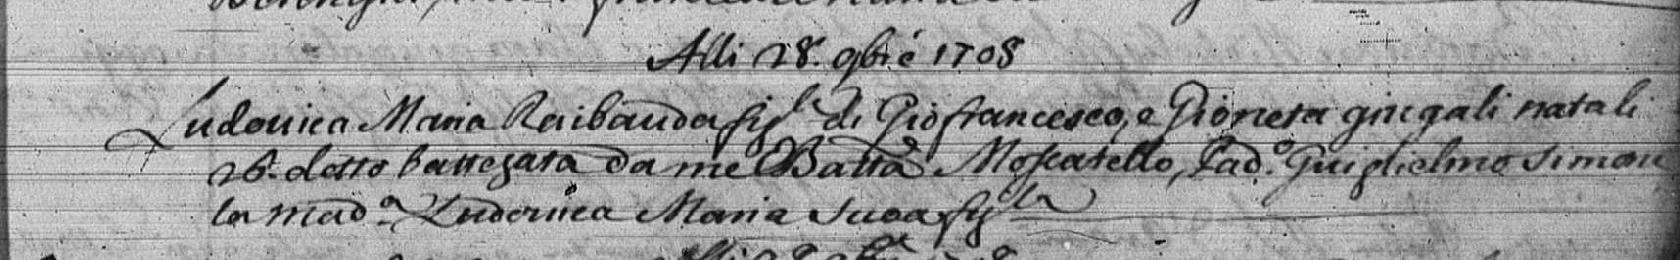 Alli 28. 9bre 1708
Ludovica Maria Raibauda figl.a di Giofrancesco, e Gioneta giugali natali
26. detto battezata da me Batta Moscatello, Pad.o Guiglielmo Simon
la mad.a Ludovica Maria sua figla